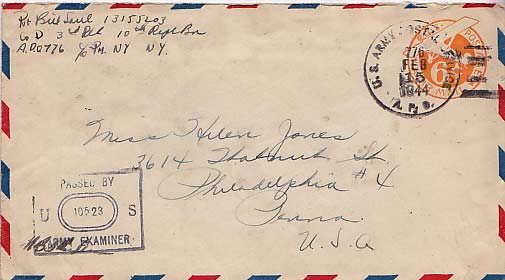 Pvt Bill Saul 13155203
Co D 3rd Plt 10th Repl Bn
A.P.O 776 c/o Pm. NY NY.
U. S. ARMY POSTAL
776
FEB
15
1944
A.P.O.
6¢
Miss Helen Jones
3614 St
Philadelphia #4
Penna
U.S.A
PASSED BY
U 10523 S
ARMY EXAMINER